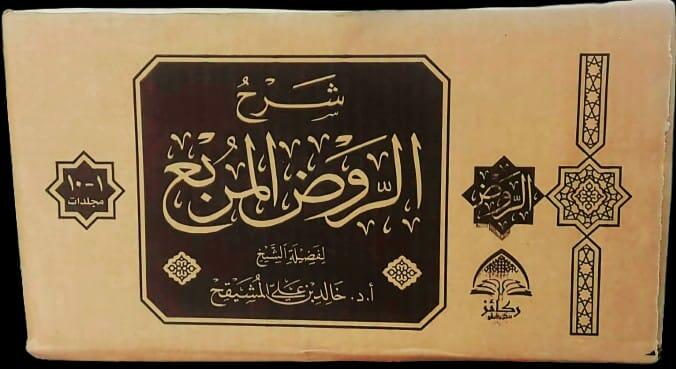 شَرْحُ
الرَّوْضِ المُرْبِع
لِفَضِيلَةِ الشَّيْخِ
أ.د. خَالِدِ بْنِ عَلِيٍّ المُشَيْقِحِ
١-١٠
مجلدات
الرَّوْضُ
ركائز